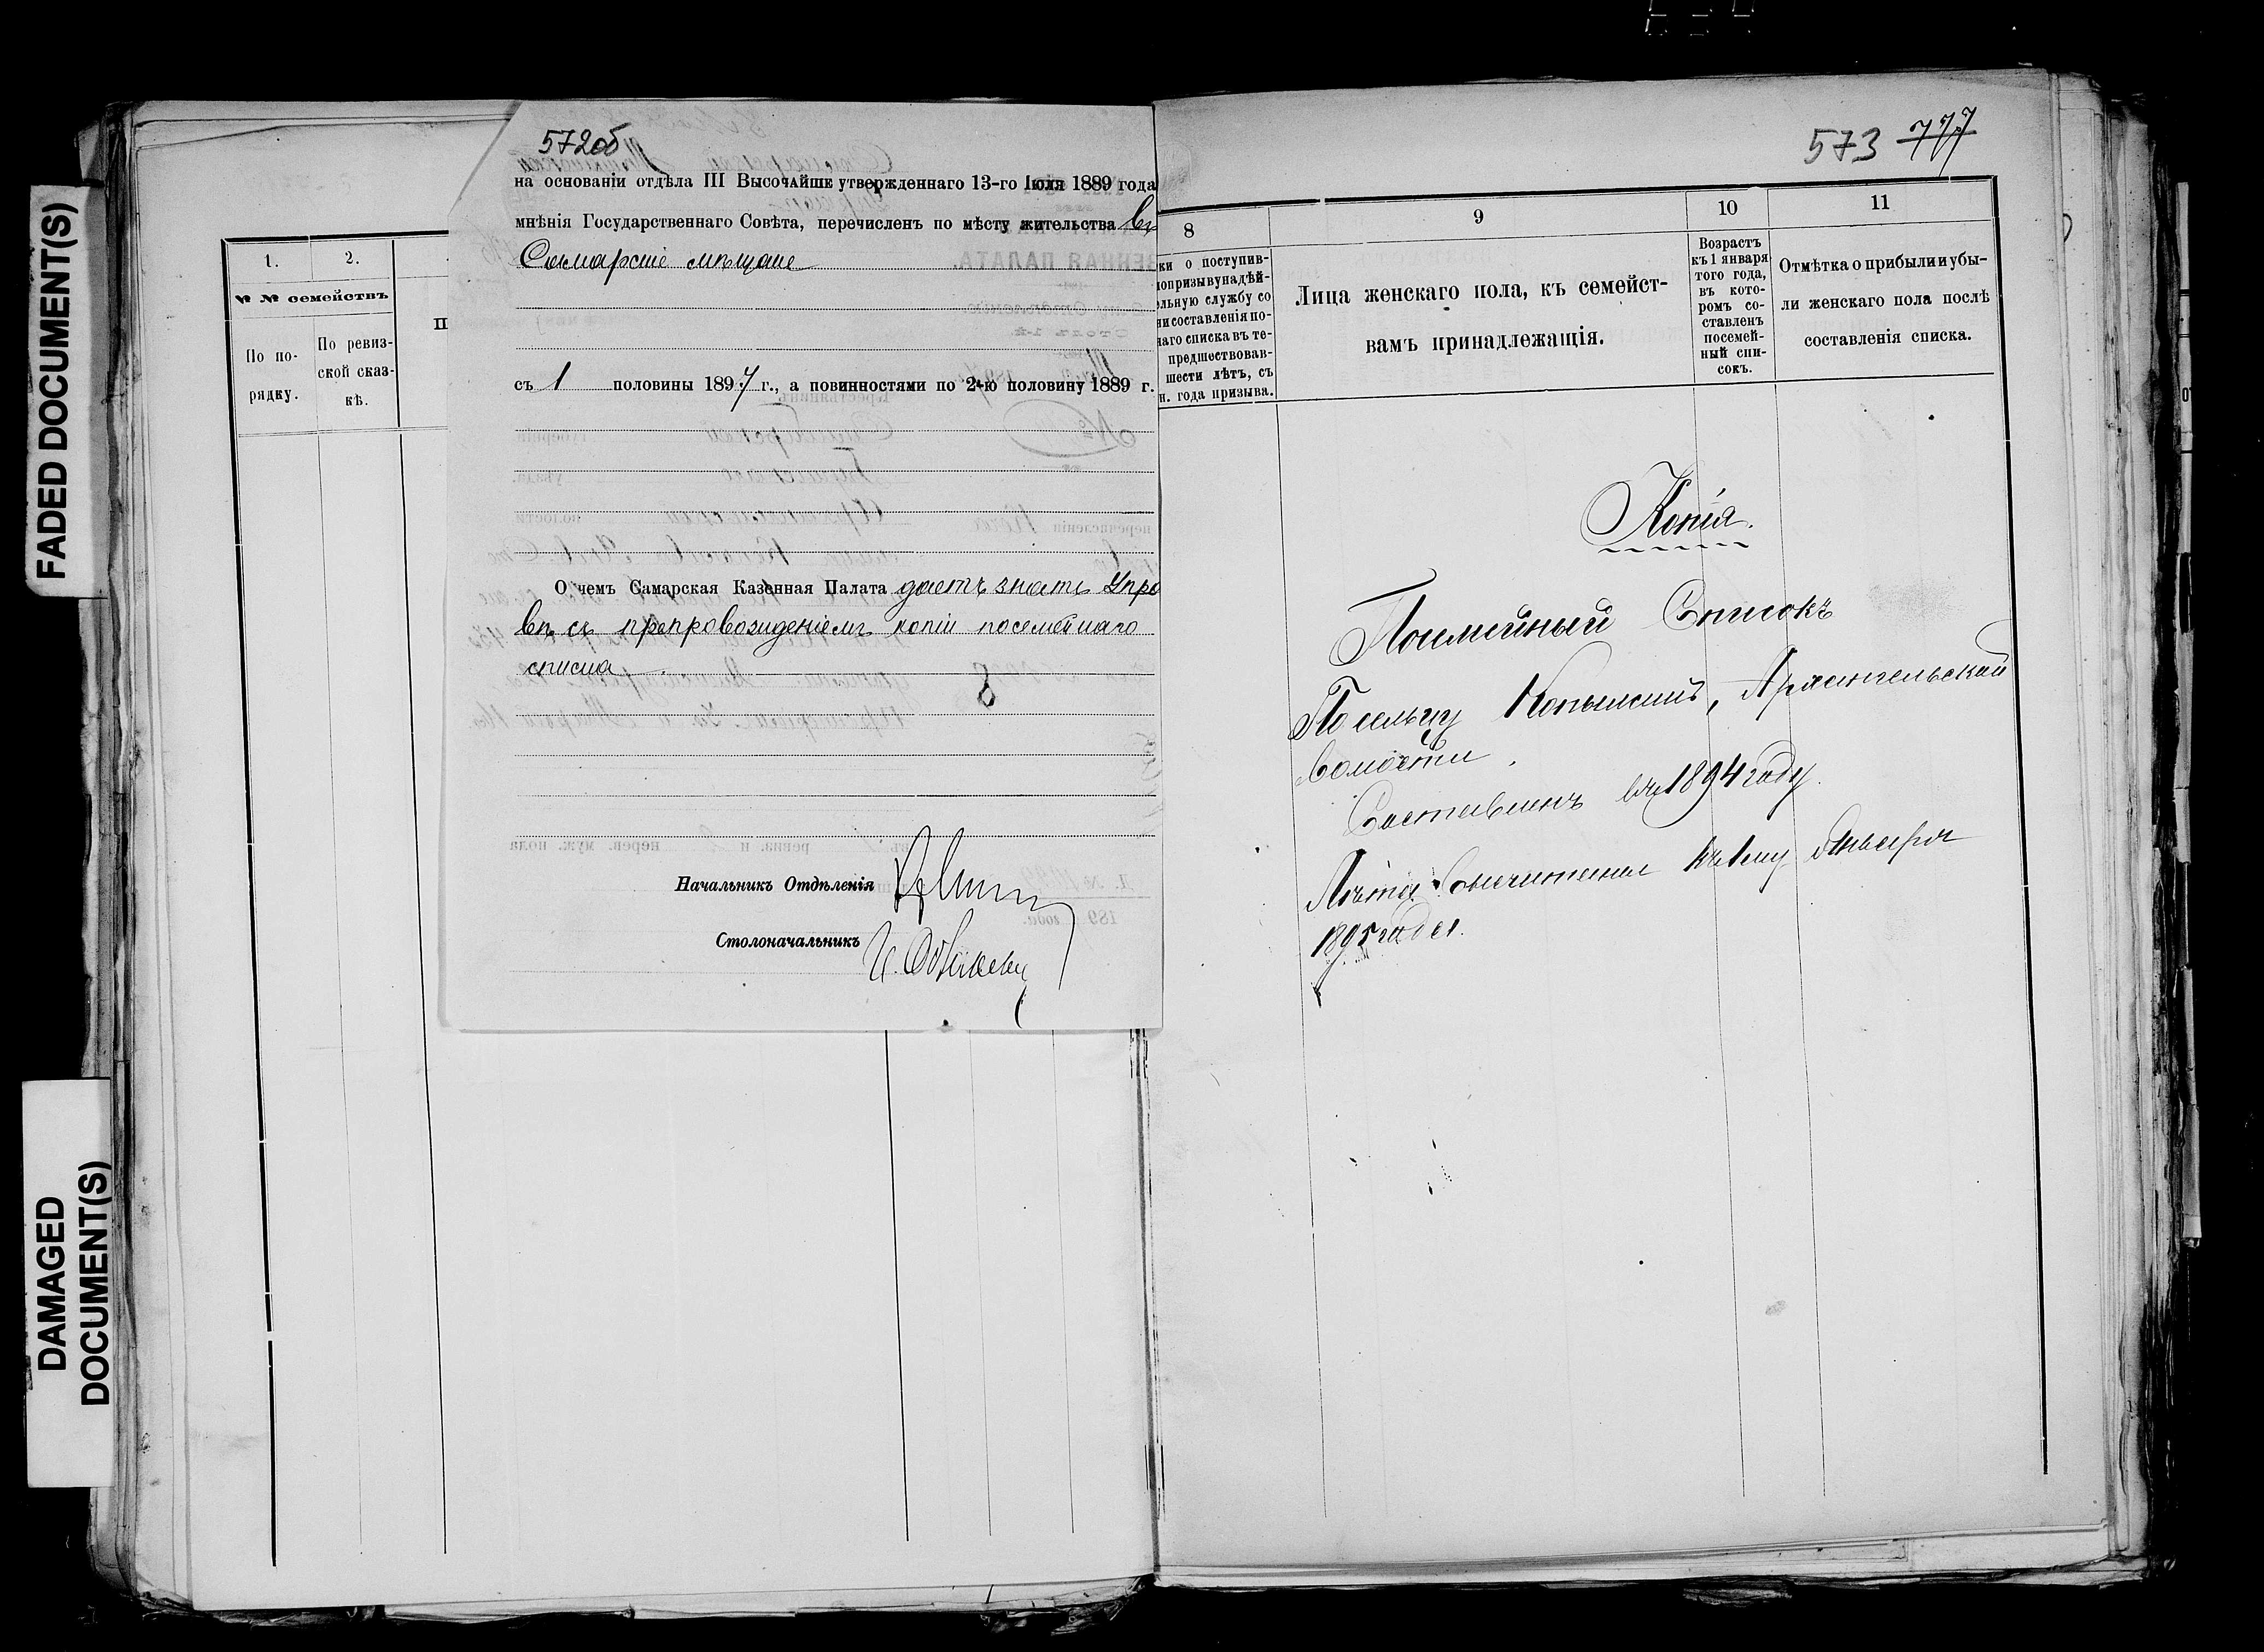 FADED DOCUMENT(S)
DAMAGED
DOCUMENT(S)
1.
2.
№ № семействъ
По по-
рядку.
По ревиз-
ской сказ-
кѣ.
572об
на основаніи отдѣла III Высочайше утвержденнаго 13-го Іюля 1889 года
мнѣнія Государственнаго Совѣта, перечисленъ по мѣсту жительства въ
Самарскіе мѣщане
съ 1 половины 1897 г., а повинностями по 2-ю половину 1889 г.
О чемъ Самарская Казенная Палата даетъ знать Упра
вѣ съ препровожденіемъ копіи посемейнаго
списка
8
Начальникъ Отдѣленія
Столоначальникъ
573 777
8
9
10
11
ки о поступив-
попризывунадѣй-
ельную службу со
нисоставленія по-
наго списка въ те-
предшествовав-
шести лѣтъ, съ
н. года призыва.
Лица женскаго пола, къ семейст-
вамъ принадлежащія.
Возрастъ
къ 1 января
того года,
въ кото-
ромъ со-
ставленъ
посемей-
ный спи-
сокъ.
Отмѣтка о прибыли и убы-
ли женскаго пола послѣ
составленія списка.
Копія.
Посемейный Списокъ
Поселку Архангельской
волости
Составленъ въ 1894 году.
Лѣта къ 1му Января
1895 года.